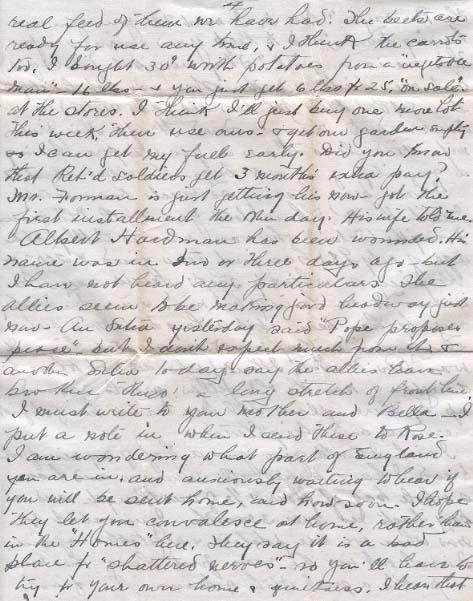 4
real feed of them we have had. The beets are
ready for use any time, & I think the carrots
too. I bought 30¢ worth potatoes from a vegetable
man 16 lbs - & you just get 6 lbs for 25, "on sale"
at the stores. I think I'll just buy one more lot
this week, then use ours - & get our garden empty
so I can get my fuel early. Did you know
that Ret'd soldiers get 3 months extra pay?
Mr. Forman is just getting his now - got the
first installment the other day. His wife told me.
Albert Hardman has been wounded. His
name was in two or three days ago - but
I have not heard any particulars. The
allies seem to be making good headway just
now - An Extra yesterday said "Pope proposes
peace" but I don't expect much from that &
another Extra today says the allies have
broken "thro'" a long stretch of front line.
I must write to your mother and Bella - I
put a note in when I send these to Rose.
I am wondering what part of England
you are in, and anxiously waiting to hear if
you will be sent home, and how soon. I hope
they let you convalesce at home, rather than
in the "Homes" here. They say it is a bad
place for "shattered nerves" - so you'll have to
try for your own home & quietness. I hear that